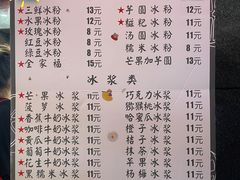 ★三鲜冰粉 13元 ★芋圆冰粉 12元
★水果冰粉 12元 ★糍粑冰粉 12元
★玫瑰冰粉 8元 汤圆冰粉 11元
红豆冰粉 8元 糯米冰粉 11元
绿豆冰粉 8元 芒果加芋圆 13元
★全家福 15元
冰浆类
★芒果冰浆 11元 巧克力冰浆 11元
菠萝冰浆 11元 猕猴桃冰浆 11元
★香蕉牛奶冰浆 11元 哈蜜瓜冰浆 11元
★咖啡牛奶冰浆 11元 橙子冰浆 11元
★黄瓜牛奶冰浆 11元 桔子冰浆 11元
★葡萄牛奶冰浆 11元 抹茶冰浆 11元
★花生牛奶冰浆 11元 苹果冰浆 11元
★黑糯米冰浆 11元 杨梅冰浆 11元